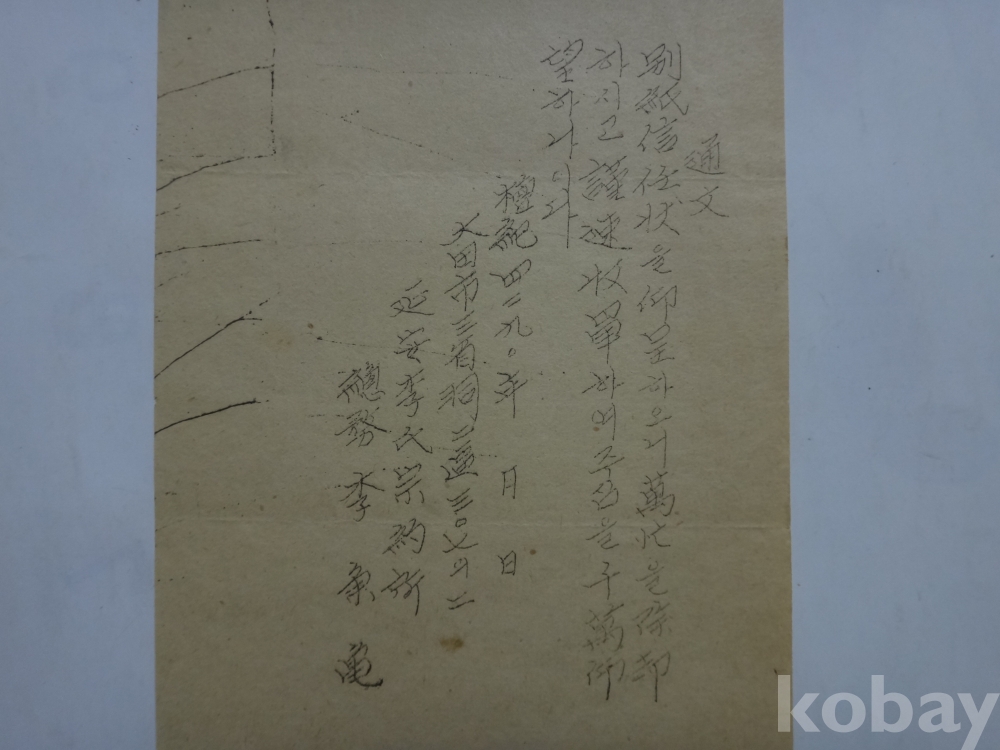 通文
別紙信任狀을仰呈하으니萬忙을除却
하시고謹速收單하여주심을千萬仰
望하나이다
檀紀四二九〇年 月 日
大田市三省洞二區三〇七의二
延安李氏宗約所
總務 李 龜
kobay